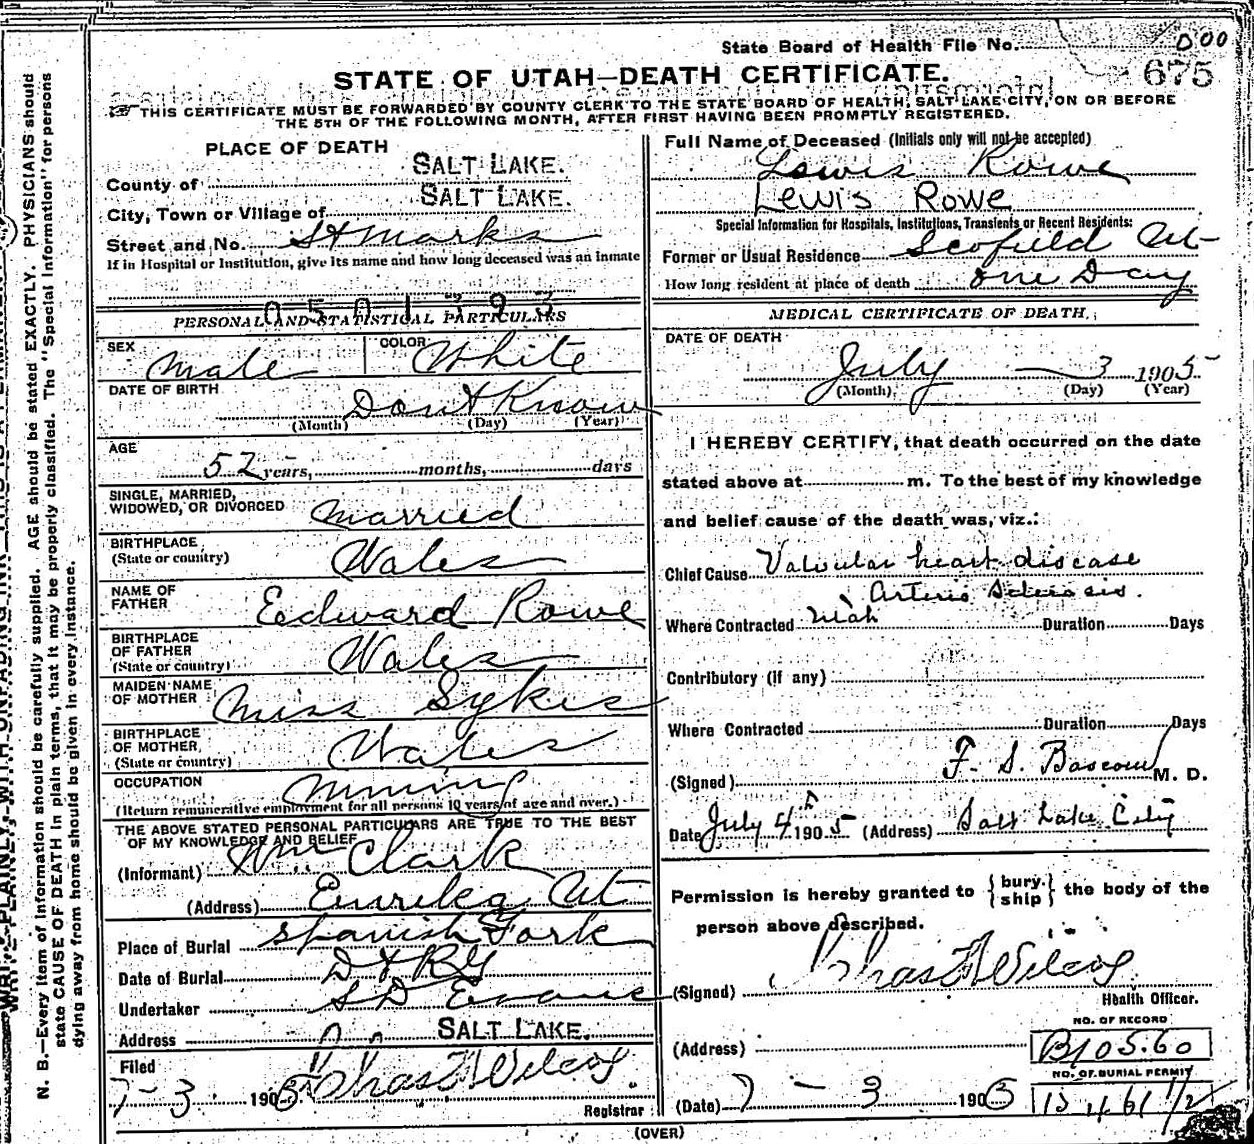 State Board of Health File No. 000
675
STATE OF UTAH—DEATH CERTIFICATE.
THIS CERTIFICATE MUST BE FORWARDED BY COUNTY CLERK TO THE STATE BOARD OF HEALTH, SALT LAKE CITY, ON OR BEFORE
THE 5TH OF THE FOLLOWING MONTH, AFTER FIRST HAVING BEEN PROMPTLY REGISTERED.
PLACE OF DEATH
County of SALT LAKE.
City, Town or Village of SALT LAKE.
Street and No. St Marks
If in Hospital or Institution, give its name and how long deceased was an inmate
PERSONAL AND STATISTICAL PARTICULARS
SEX Male COLOR White
DATE OF BIRTH Dont Know
(Month) (Day) (Year)
AGE
52 years, months, days
SINGLE, MARRIED,
WIDOWED, OR DIVORCED Married
BIRTHPLACE
(State or country) Wales
NAME OF
FATHER Edward Rowe
BIRTHPLACE
OF FATHER
(State or country) Wales
MAIDEN NAME
OF MOTHER Miss Sykes
BIRTHPLACE
OF MOTHER
(State or country) Wales
OCCUPATION Mining
(Return remunerative employment for all persons 10 years of age and over.)
THE ABOVE STATED PERSONAL PARTICULARS ARE TRUE TO THE BEST
OF MY KNOWLEDGE AND BELIEF
(Informant) Wm Clark
(Address) Eurika Ut
Place of Burial Spanish Fork
Date of Burial D & R G
Undertaker S D Evans
Address SALT LAKE.
Filed
7-3 1905 Chas F Wilcox
Registrar
(OVER)
Full Name of Deceased (Initials only will not be accepted)
Lewis Rowe
LEWIS ROWE
Special Information for Hospitals, Institutions, Transients or Recent Residents:
Former or Usual Residence Scofield Ut
How long resident at place of death one Day
MEDICAL CERTIFICATE OF DEATH.
DATE OF DEATH
July 3 1905
(Month) (Day) (Year)
I HEREBY CERTIFY, that death occurred on the date
stated above at m. To the best of my knowledge
and belief cause of the death was, viz.:
Chief Cause Valvular heart disease
Arterio Sclerosis.
Where Contracted Utah Duration Days
Contributory (if any)
Where Contracted Duration Days
(Signed) F. S. Bascom M. D.
Date July 4th 1905 (Address) Salt Lake City
Permission is hereby granted to {bury
ship} the body of the
person above described.
(Signed) Chas F Wilcox
Health Officer.
NO. OF RECORD
(Address) B10560
NO. OF BURIAL PERMIT
(Date) 7 - 3 1905
N. B.—Every item of information should be carefully supplied. AGE should be stated EXACTLY. PHYSICIANS should
state CAUSE OF DEATH in plain terms, that it may be properly classified. The "Special Information" for persons
dying away from home should be given in every instance.